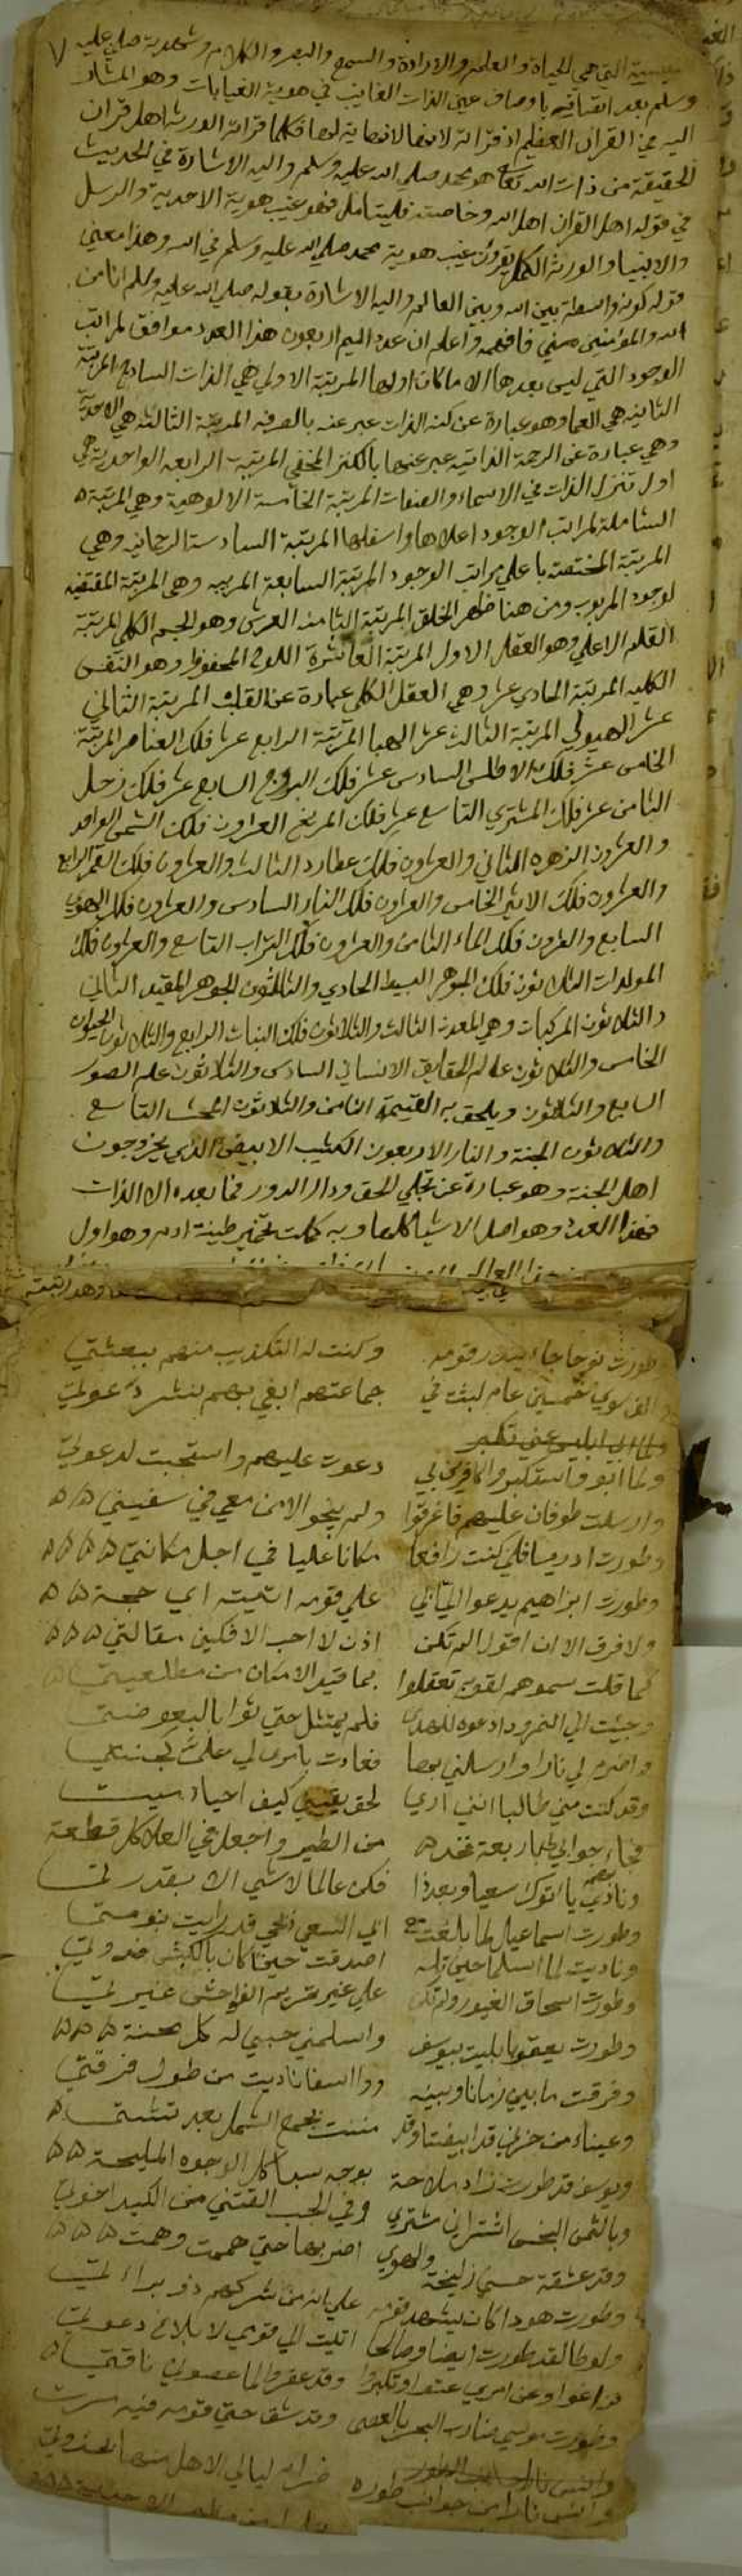 نفسية التي هي الحياة والعلم والارادة والسمع والبصر والكلام وشهدية صلي عليه
وسلم بعد اتقانيه باوصاف عين الذات الغايب في هوية الغيابات وهو المشار
اليه في القران العظيم اذ قرانه لانها لانهاية لها فكلما قرانه الورثا اهل قران
الحقيقة من ذات الله تعالى هو محمد صلى الله عليه وسلم واليه الاشارة في الحديث
في قوله اهل القران اهل الله وخاصته فليتامل فهو غيب هوية الاحدية والرسل
والانبيا والورثة الكمل يقرون غيب هوية محمد صلي الله عليه وسلم في الله وهذا معني
قوله كونه واسطة بين الله وبين العالم واليه الاشارة بقوله صلي الله عليه وسلم انا من
الله والمؤمنين مني فافهم واعلم ان عدد الميم اربعون هذا العدد موافق لمراتب
الوجود التي ليس بعدها الا ماكان اولها المرتبة الاولي هي الذات الساذج المرتبة
الثانيه هي العما وهو عبارة عن كنه الذات عبر عنه بالصرفه المرتبة الثالثه هي الاحدية
وهي عبارة عن الرحمة الذاتيه عبر عنها بالكنز المخفي المرتبة الرابعه الواحدية هي
اول تنزل الذات في الاسماء والصفات المرتبة الخامسة الالوهية وهي المرتبة
الشاملة لمراتب الوجود اعلاها واسفلها المرتبة السادسة الرحمانيه وهي
المرتبة المختصة باعلي مراتب الوجود المرتبة السابعة الربيه وهي المرتبة المقتضيه
لوجود المربوب ومن هنا ظهر الخلق المرتبة الثامنه العرش وهو الجسم الكلي المرتبة
القلم الاعلي وهو العقل الاول المرتبة العاشرة اللوح المحفوظ وهو النفس
الكليه المرتبة الحادي عشر وهي العقل الكلي عبارة عن القلب المرتبة الثاني
عشر الهيولي المرتبة الثالث عشر الهبا المرتبة الرابع عشر فلك العناصر المرتبة
الخامس عشر فلك الاطلس السادس عشر فلك البروج السابع عشر فلك زحل
الثامن عشر فلك المشتري التاسع عشر فلك المريخ العشرون فلك الشمس الواحد
والعشرون الزهره الثاني والعشرون فلك عطارد الثالث والعشرون فلك القمر الرابع
والعشرون فلك الاثير الخامس والعشرون فلك النار السادس والعشرون فلك الهوي
السابع والعشرون فلك الماء الثامن والعشرون فلك التراب التاسع والعشرون فلك
المولدات الثلاثون فلك الجوهر البسيط الحادي والثلاثون الجوهر المقيد الثاني
والثلاثون المركبات وهي المعدن الثالث والثلاثون فلك النبات الرابع والثلاثون الحيوان
الخامس والثلاثون عالم الحقايق الانساني السادس والثلاثون عالم الصور
السابع والثلاثون ويلحق به القيمة الثامن والثلاثون المحشر التاسع
والثلاثون الجنة والنار الاربعون الكثيب الابيض الذي يخرجون
اهل الجنة وهو عبارة عن تجلي الحق ودار الدور فما بعده الا الذات
فهذا العدد وهو اصل الاشيا كلها وبه كملت تخمير طينة ادم وهو اول
طورت نوحا جاء ينذر قومه وكنت له التكذيب منهم ببعثتي
الف سوي خمسين عام لبثت في جماعتهم ابغي بهم بنشر دعوتي
ولما ابو واستكبروا كافرين بي دعوت عليهم واستجبت لدعوتي
وارسلت طوفان عليهم فاغرقوا ولم ينجو الا من معي في سفينتي
وطورت ادريسا فلي كنت رافعا مكانا عليا في اجل مكانتي
وطورت ابراهيم يدعو الي علي قومه اتيته اي حجة
ولا فرق الا ان اقول الم تكن اذن لا احب الافلين مقالتي
كما قلت سموهم لقوم تعقلوا بما قيد الامكان من مطلعيتي
وجئت الي النمرود ادعوه للهدي فلم يمتثل حتي ثوا بالبعوضتي
واضرم لي نارا وارسلني بها فعادت بامري لي علمت جنتي
وقد كنت مني طالبا انني اري لحق يقيني كيف احياء ميت
فجاء جوابي خذ اربعة من الطير واجعل في العلا كل قطعة
ونادي ياتوك سعيا وبعد ذا فكن عالما لا شي الا بقدرتي
وطورت اسماعيل لما بلغت مع ابي السعي ذبحي قد رايت بنومتي
وناديت لما اسلما حين تله اصدقت حيث كان بالكبش فدوتي
وطورت اسحاق الغيور ولم تكن علي غير تحريم الفواحش غيرتي
وطورت يعقوبا بليت بيوسف واسلمني حبي له كل محنة
وفرقت ما بيني زمانا وبينه ووااسفا ناديت من طول فرقتي
وعيناه من حزني قد ابيضتا وقد مننت بجمع الشمل بعد تشتتي
ويوسف قد طورت زاد ملاحة بوجه سبا كل الوجوه المليحة
وبالثمن البخس اشتراني مشتري وفي الجب القتني من الكيد اخوتي
وقد عشقة حسني زليخة والهوي اضر بها حتي هممت وهمت
وطورت هودا كان يشهد قومه علي انه من شركهم ذو براءتي
ولوطا لقد طورت ايضا وصالحا اتيت الي قومي لابلاغ دعوتي
فراغوا وعن امري عتوا وتكبروا وقد عقروا لما عصوني ناقتي
وطورت موسي ضارب البحر بالعصي وقد شق حتي قومه فيه سرت
وانس نارا من جوانب طوره